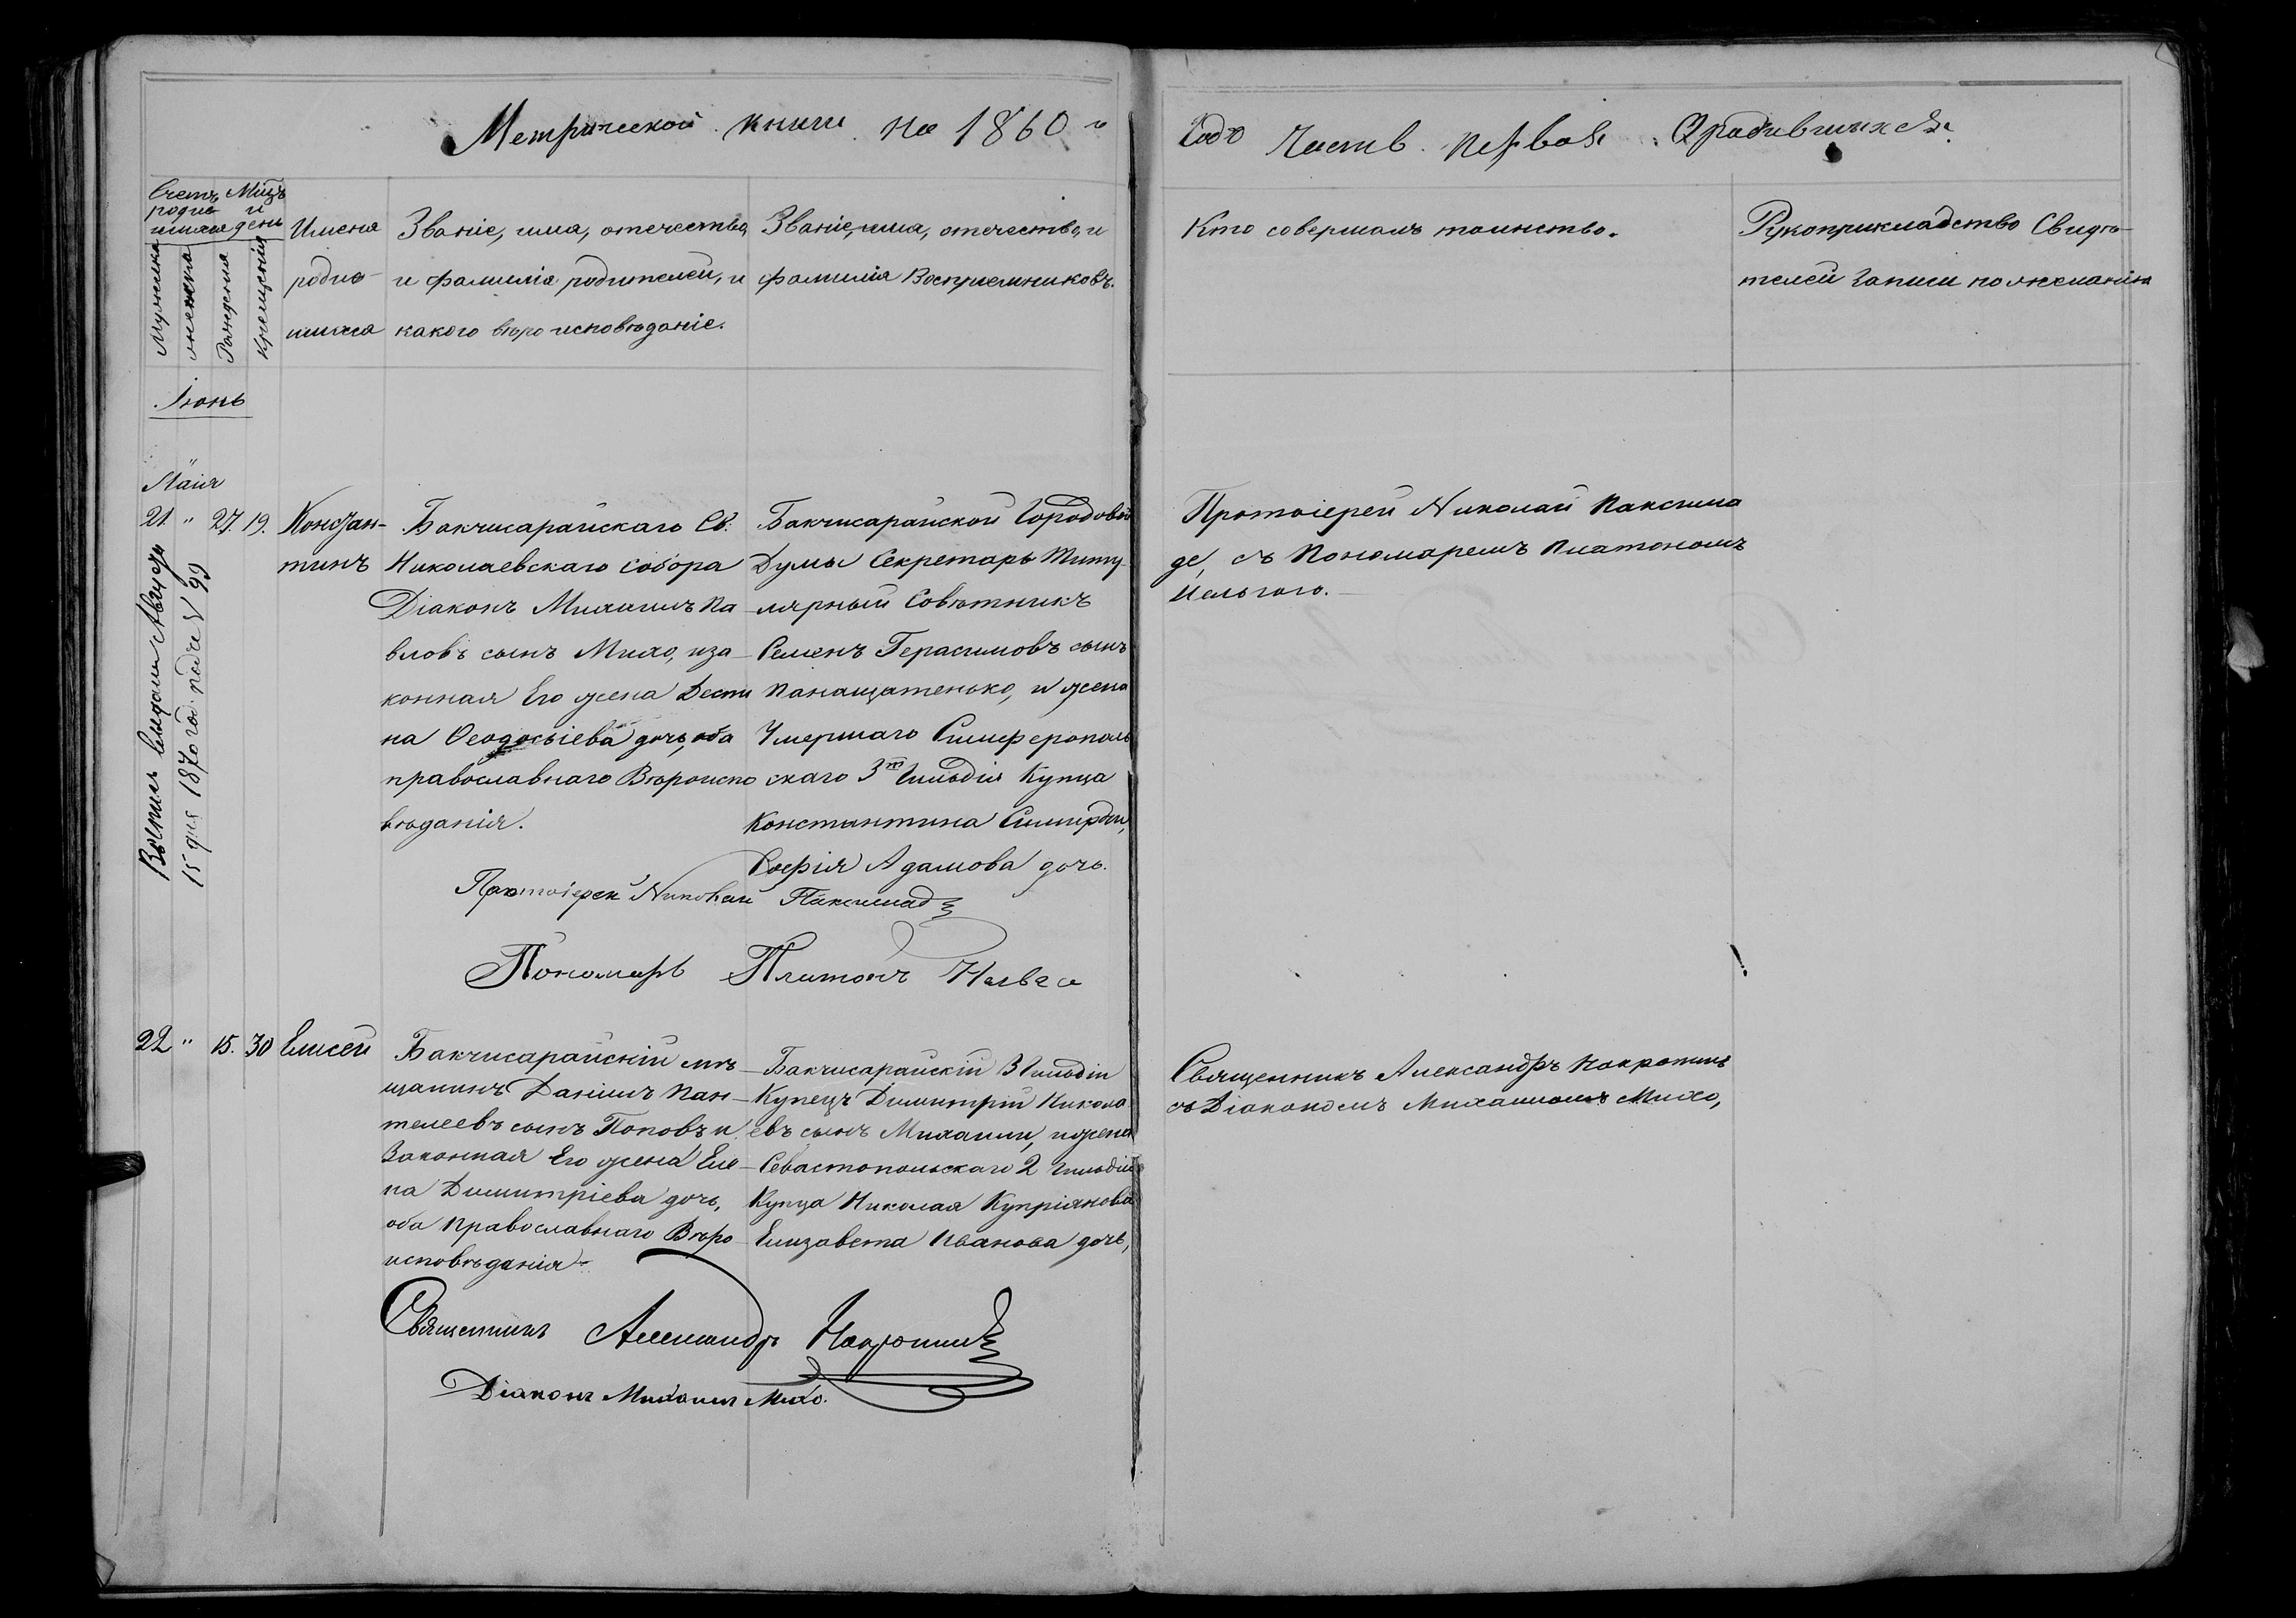 Метрической книги на 1860 й
годъ Часть первая О родившихся.
Счетъ родив-шихся
Мѣцъ и день
Мужеска
женска
Рожденія
Крещенія
Имена
родив-
шихся
Званіе, имя, отечество,
и фамилія родителей, и
какого вѣроисповѣданіе.
Званіе, имя, отечество, и
фамилія Воспріемниковъ.
Кто совершалъ таинство.
Рукоприкладство Свидѣ-
телей записи по желанію
Іюнь
Маія
21. " 27. 19.
Констан-
тинъ
Бакчисарайскаго Св:
Николаевскаго собора
Діаконъ Михаилъ Па
вловъ сынъ Михо, иза-
конная Его жена Дести
на Ѳеодосіева дочь, оба
православнаго Вѣроиспо
вѣданія.
Бакчисарайской Городовой
Думы Секретарь Титу-
лярный Совѣтникъ
Семенъ Герасимовъ сынъ
Панащатенько, и жена
Умершаго Симферополь
скаго 3й Гильдія Купца
Константина
Софія Адамова дочь.
Протоіерей Николай Паксима
де, съ Пономаремъ Платономъ
15 дня 1870 год. подъ № 99
Протоіерей Николай Паксимад
Пономарь Платонъ
22 " 15. 30
Елисей
Бакчисарайскій мѣ-
щанинъ Даніилъ Пан-
телеевъ сынъ Поповъ и
Законная Его жена Еле-
на Димитріева дочь,
оба Православнаго Вѣро
исповѣданія-
Бакчисарайскій 3 Гильдіи
Купецъ Димитрій Никола
евъ сынъ Михаили, и жена
Севастопольскаго 2 Гильдіи
Купца Николая Купріянова
Елизавета Иванова дочь,
Священникъ Александръ
съ Діакономъ Михаиломъ Михо,
Священникъ Александръ
Діаконъ Михаилъ Михо.